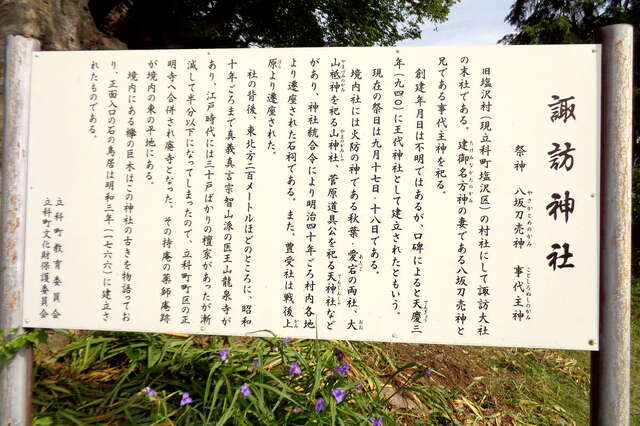 諏訪神社
祭神　八坂刀売神　事代主神
やさかとめのかみ　ことしろぬしのかみ
旧塩沢村（現立科町塩沢区）の村社にして諏訪大社
の末社である。建御名方神の妻である八坂刀売神と
たけみなかたのかみ
兄である事代主神を祀る。
創建年月日は不明ではあるが、口碑によると天慶三
てんぎょう
年（九四〇）に王代神社として建立されたともいう。
現在の祭日は九月十七日・十八日である。
境内社には火防の神である秋葉・愛宕の両社、大
あたご　おお
山祗神を祀る山神社、菅原道真公を祀る天神社など
やまつみのかみ　やまじんしゃ　てんじんしゃ
があり、神社統合令により明治四十年ごろ村内各地
より遷座された石祠である。また、豊受社は戦後上
かん
原より遷座された。
ばら
社の背後、東北方二百メートルほどのところに、昭和
十年ごろまで真義真言宗智山派の医王山龍泉寺が
あり、江戸時代には三十戸ばかりの檀家があったが漸
減して半分以下になってしまったので、立科町町区の正
明寺へ合併され廃寺となった。その持庵の薬師庵跡
が境内の東の平地にある。
境内にある欅の巨木はこの神社の古きを物語ってお
り、正面入口の石の鳥居は明和三年（一七六六）に建立さ
れたものである。
立科町教育委員会
立科町文化財保護委員会